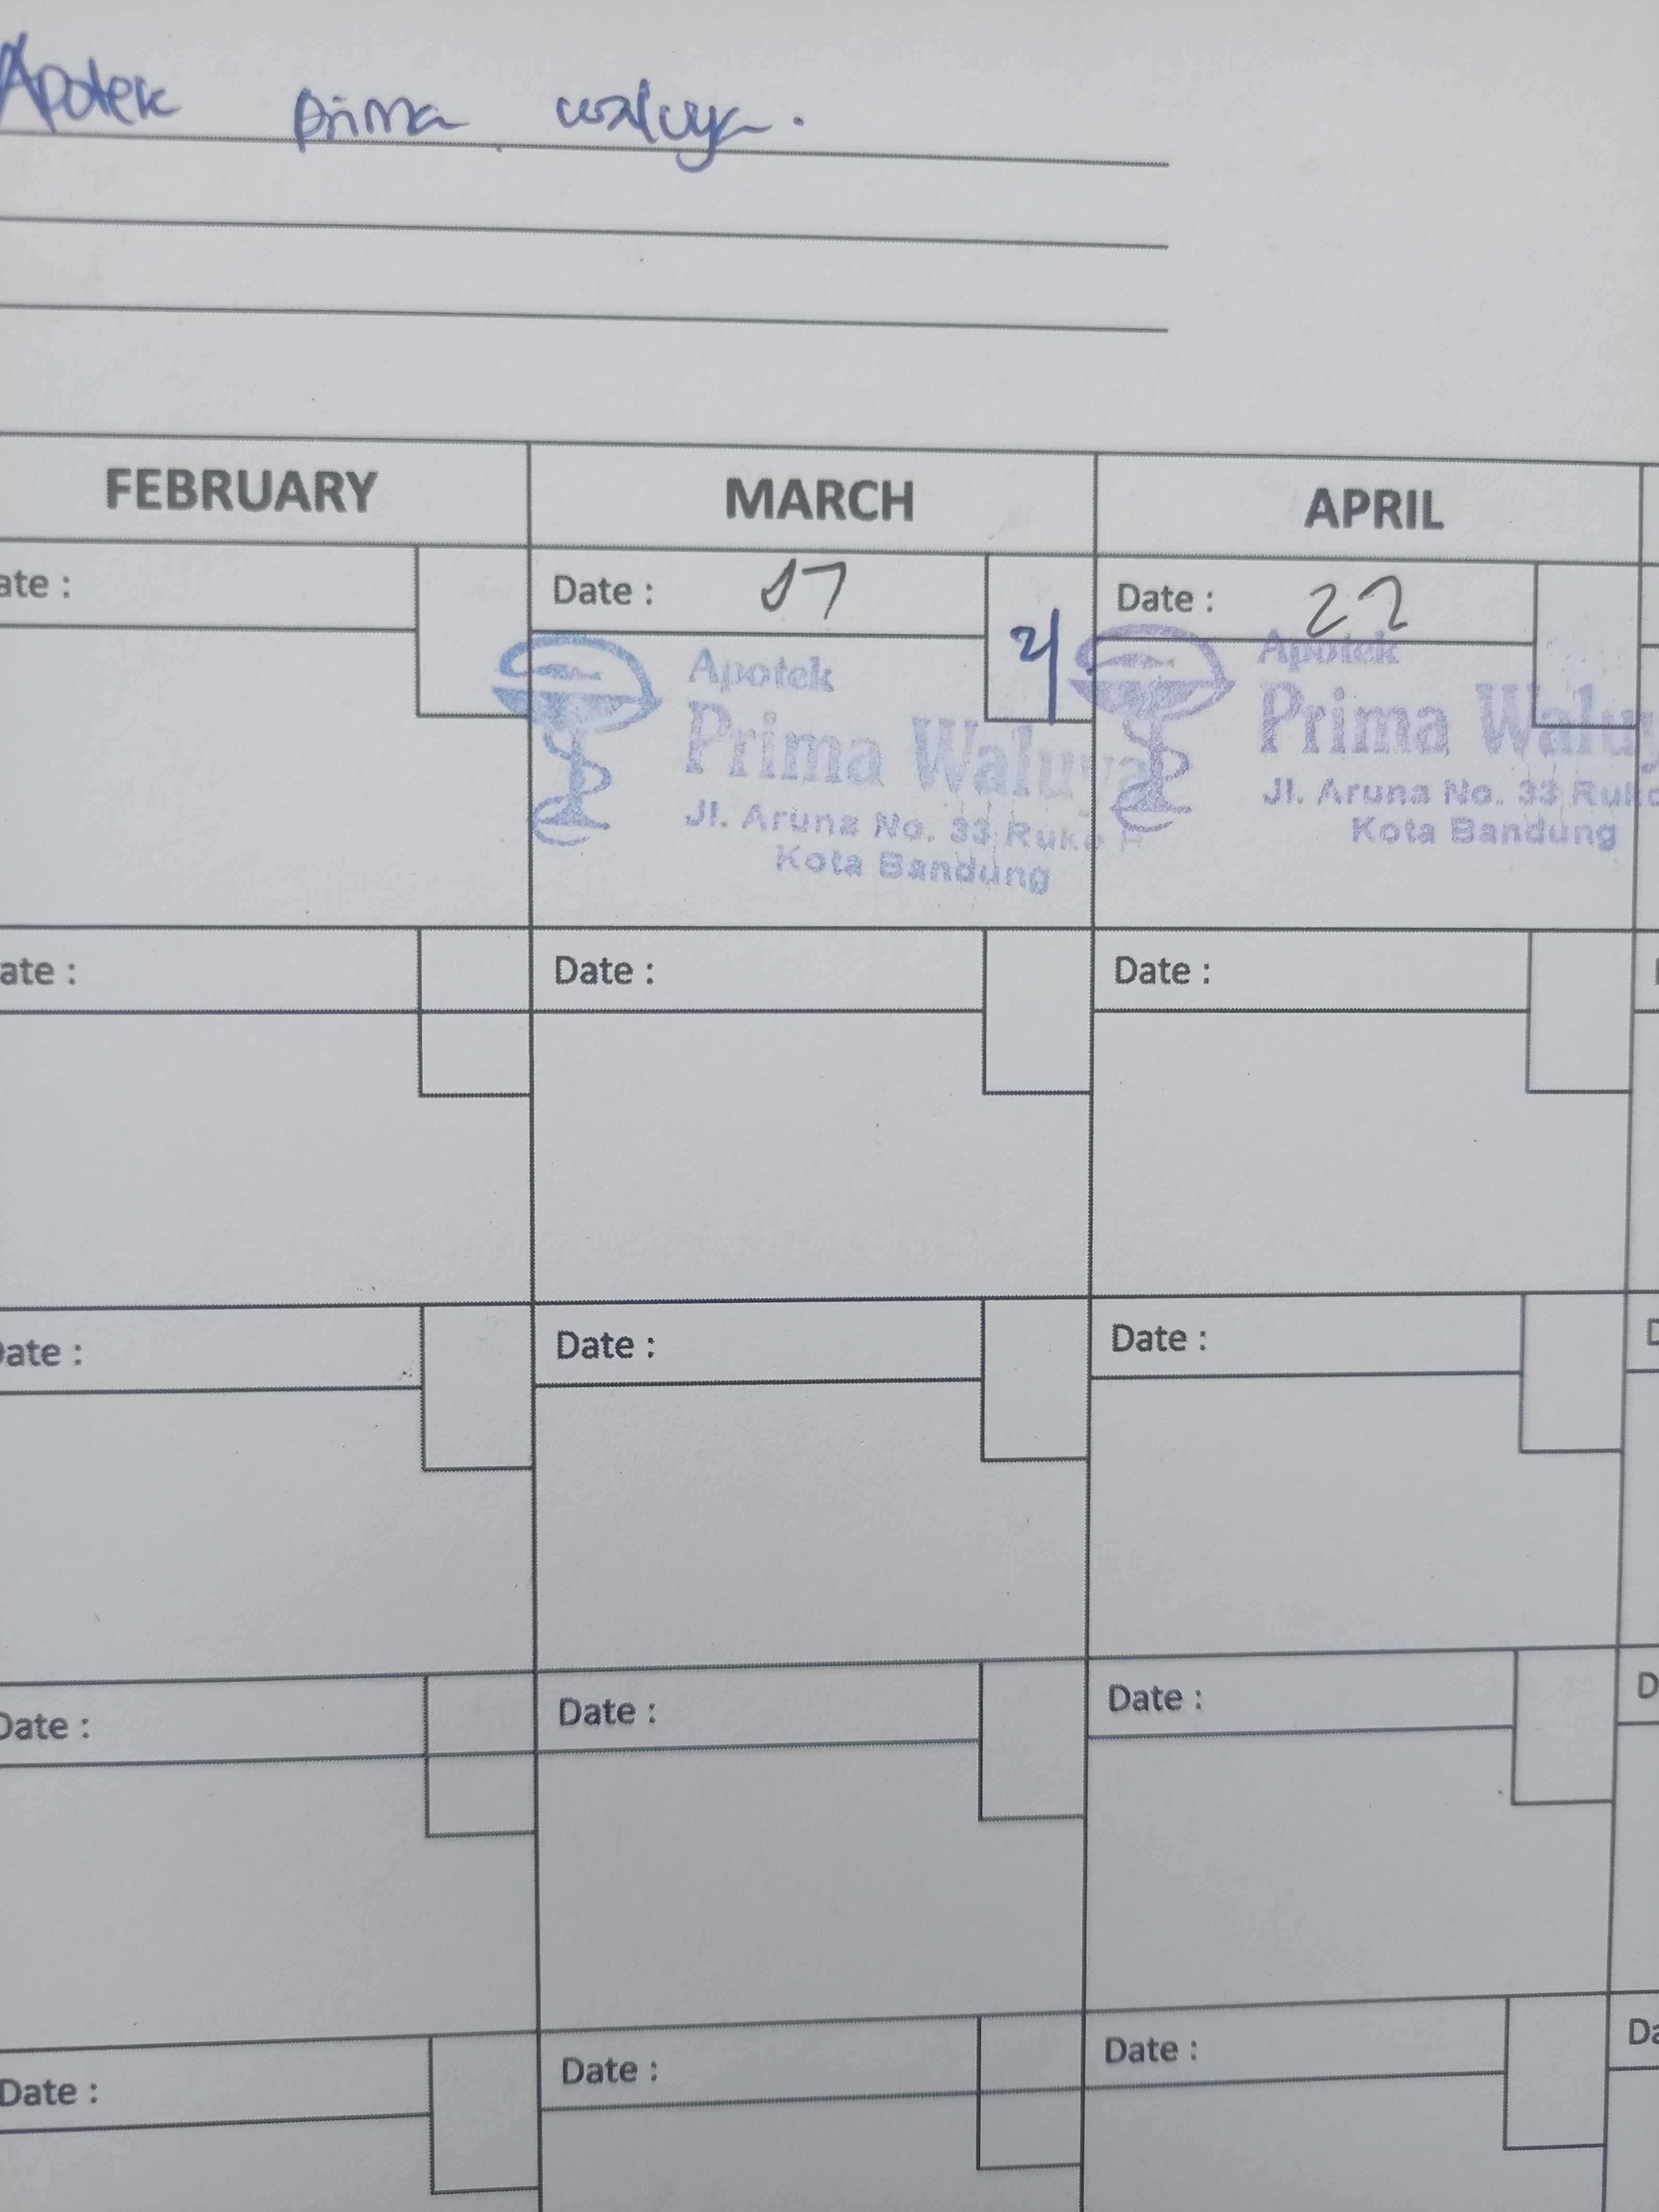 Apotek prima waluya.
FEBRUARY MARCH APRIL
ate : Date : 07 Date : 22
Apotek
Prima Waluya
Jl. Aruna No. 33 Ruko F
Kota Bandung
Apotek
Prima Waluy
Jl. Aruna No. 33 Ruko
Kota Bandung
ate : Date : Date :
Date : Date : Date : D
Date : Date : Date : D
Date : Date : Date : Da